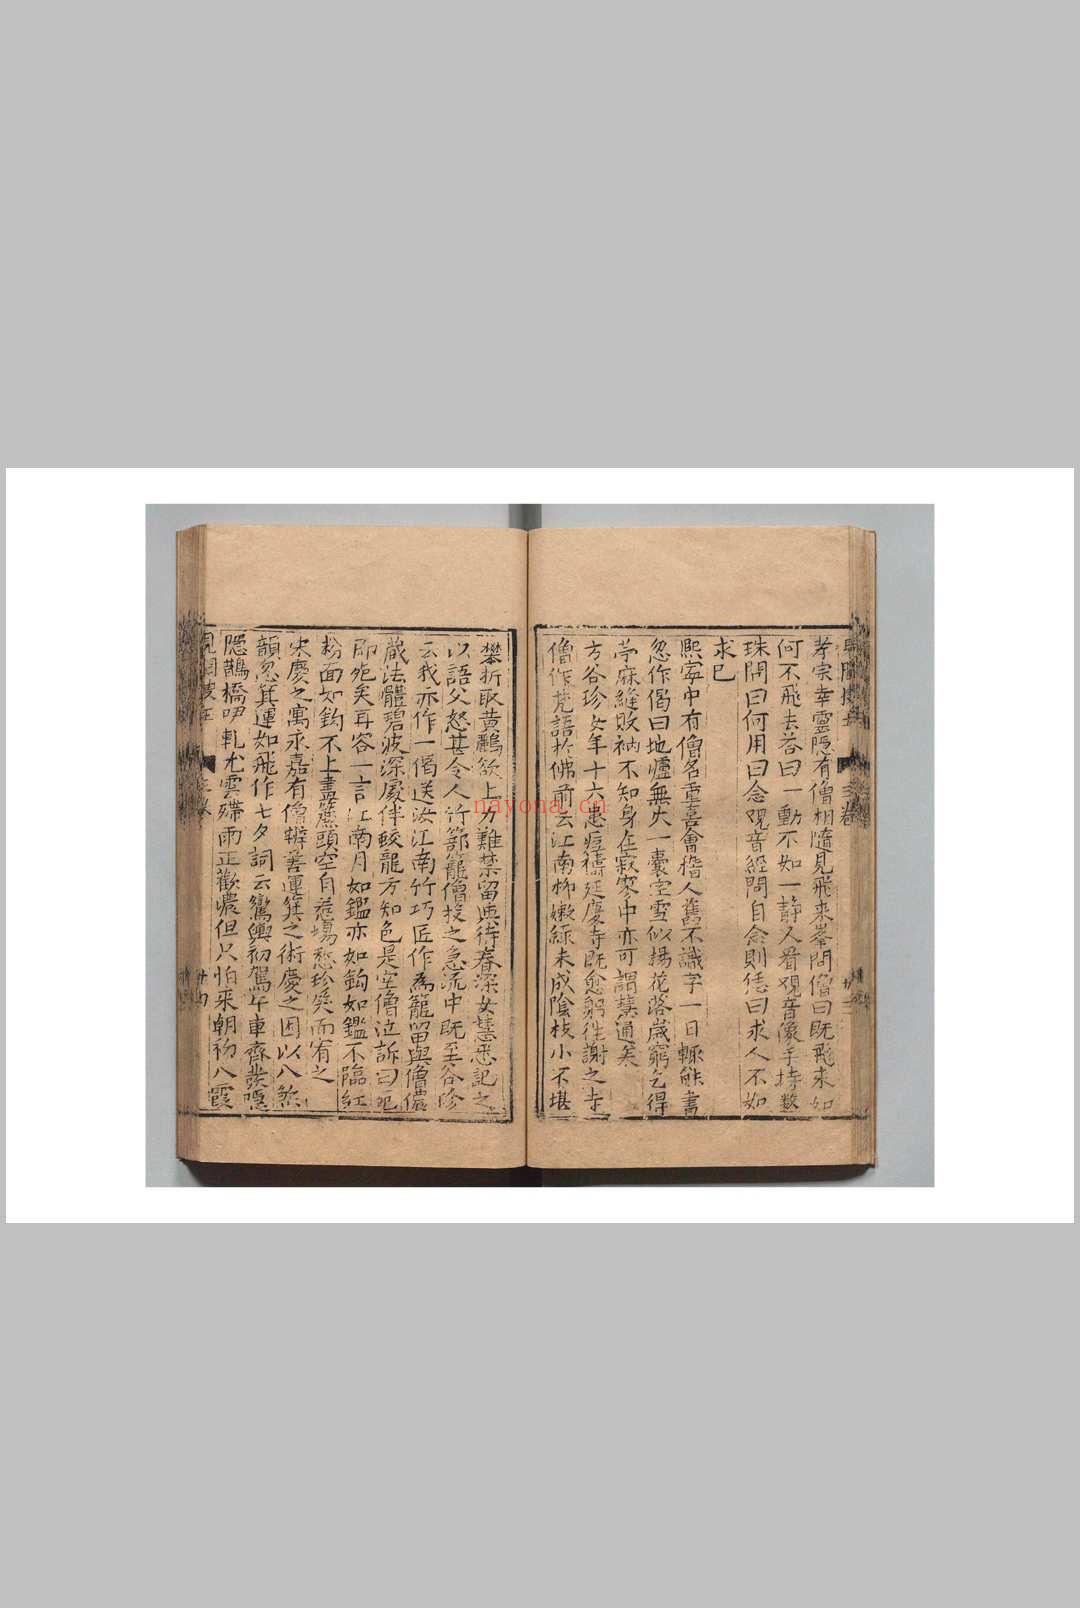 孝宗幸靈隱有僧相隨見飛來峯問僧曰既飛來如
何不飛去荅曰一動不如一静又看觀音像手持數
珠問曰何用曰念觀音經問自念則恁曰求人不如
求巳
熙寧中有僧名重喜會稽人舊不識字一日輙能書
忽作偈曰地爐無火一囊空雪似揚花落歲窮乞得
苧麻縫敗衲不知身在寂寥中亦可謂慧通矣
方谷珍女年十六患痘禱延慶寺既愈躬徃謝之寺
僧作梵語於佛前云江南柳嫩緑未成陰枝小不堪
攀折取黃鸝欲上力難禁留與待春深女慧悉記之
以語父怒甚令人竹篰籠僧投之急流中既至谷珍
云我亦作一偈送汝江南竹巧匠作為籠留與僧儂
藏法體碧波深處伴蛟龍方知色是空僧泣訴曰死
即死矣再容一言江南月如鑑亦如鈎如鑑不臨紅
粉面如鈎不上畫簷頭空自惹塲愁珍笑而宥之
宋慶之寓永嘉有僧辨善運箕之術慶之因以八煞
韻忽箕運如飛作七夕詞云鸞輿初駕午車齊發隱
隱鵲橋咿軋尤雲殢雨正歡濃但只怕來朝初八霞
nayona.cn